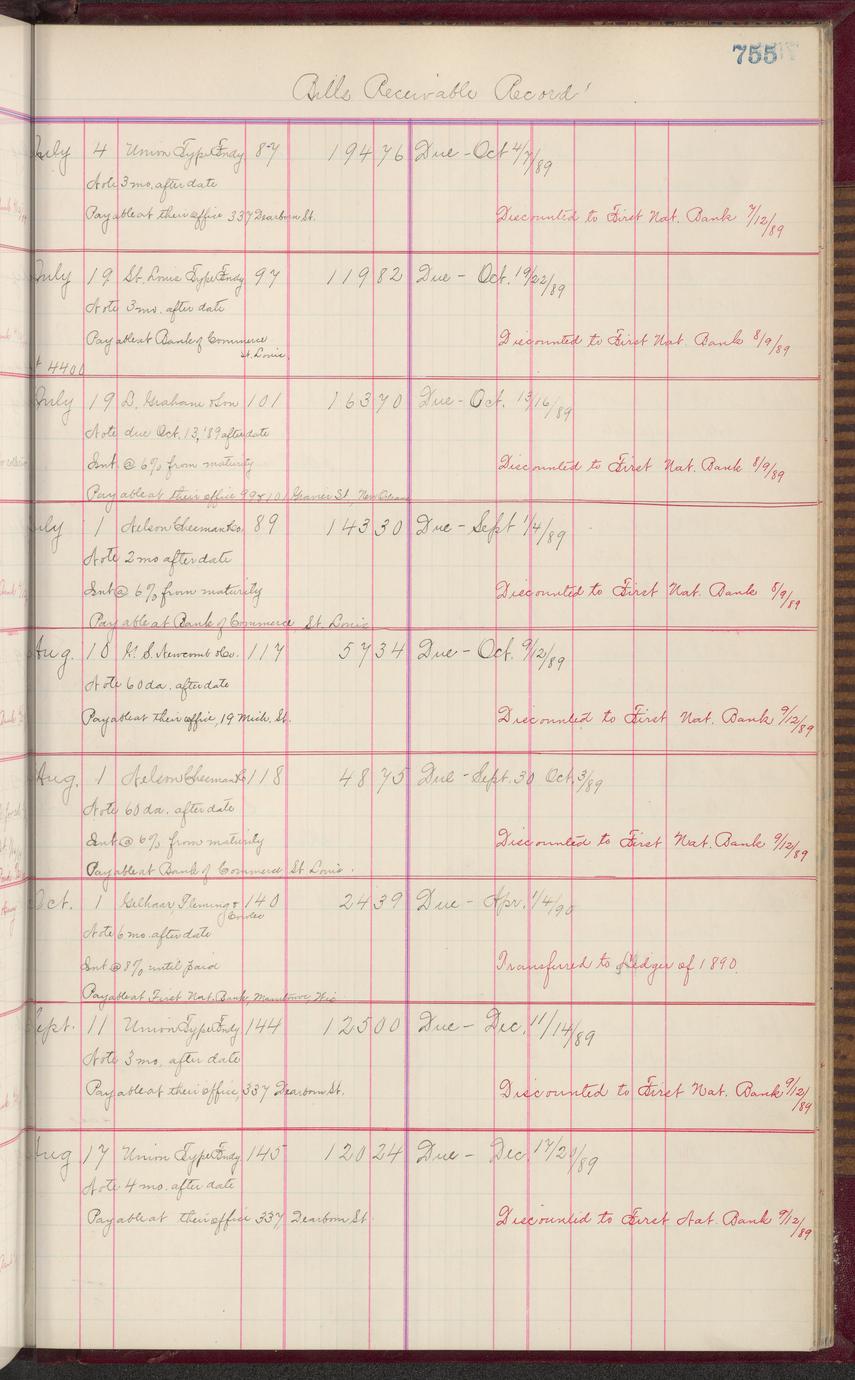 755
Bills Receivable Record
July 4 Union Type Fndy 87 194 76 Due - Oct 4/7/89
Note 3 mo. after date
Payable at their office 337 Dearborn St. Discounted to First Nat. Bank 7/12/89
July 19 St. Louis Type Fndy 97 119 82 Due - Oct. 19/22/89
Note 3 mo. after date
Payable at Bank of Commerce Discounted to First Nat. Bank 8/9/89
St. Louis.
4400
July 19 D. Graham & Son 101 163 70 Due - Oct. 13/16/89
Note due Oct. 13, '89 after date
Int @ 6% from maturity Discounted to First Nat. Bank 8/9/89
Payable at their office 99 & 101 Gravier St, New Orleans
July 1 Nelson Chesman & Co. 89 143 30 Due - Sept 1/4/89
Note 2 mo after date
Int @ 6% from maturity Discounted to First Nat. Bank 8/9/89
Payable at Bank of Commerce St. Louis
Aug. 10 G. S. Newcomb & Co. 117 57 34 Due - Oct. 9/12/89
Note 60 da. after date
Payable at their office, 19 Mich. St. Discounted to First Nat. Bank 9/12/89
Aug. 1 Nelson Chesman & Co 118 48 75 Due - Sept. 30 Oct. 3/89
Note 60 da. after date
Int @ 6% from maturity Discounted to First Nat. Bank 9/12/89
Payable at Bank of Commerce St. Louis.
Oct. 1 Fleming & 140 24 39 Due - Apr. 1/4/90
Note 6 mo. after date
Int @ 8% until paid Transferred to Ledger of 1890.
Payable at First Nat. Bank, Manitowoc, Wis
Sept. 11 Union Type Fndy 144 125 00 Due - Dec. 11/14/89
Note 3 mo. after date
Payable at their office 337 Dearborn St. Discounted to First Nat. Bank 9/12/89
Aug 17 Union Type Fndy. 145 120 24 Due - Dec. 17/20/89
Note 4 mo. after date
Payable at their office 337 Dearborn St. Discounted to First Nat. Bank 9/12/89